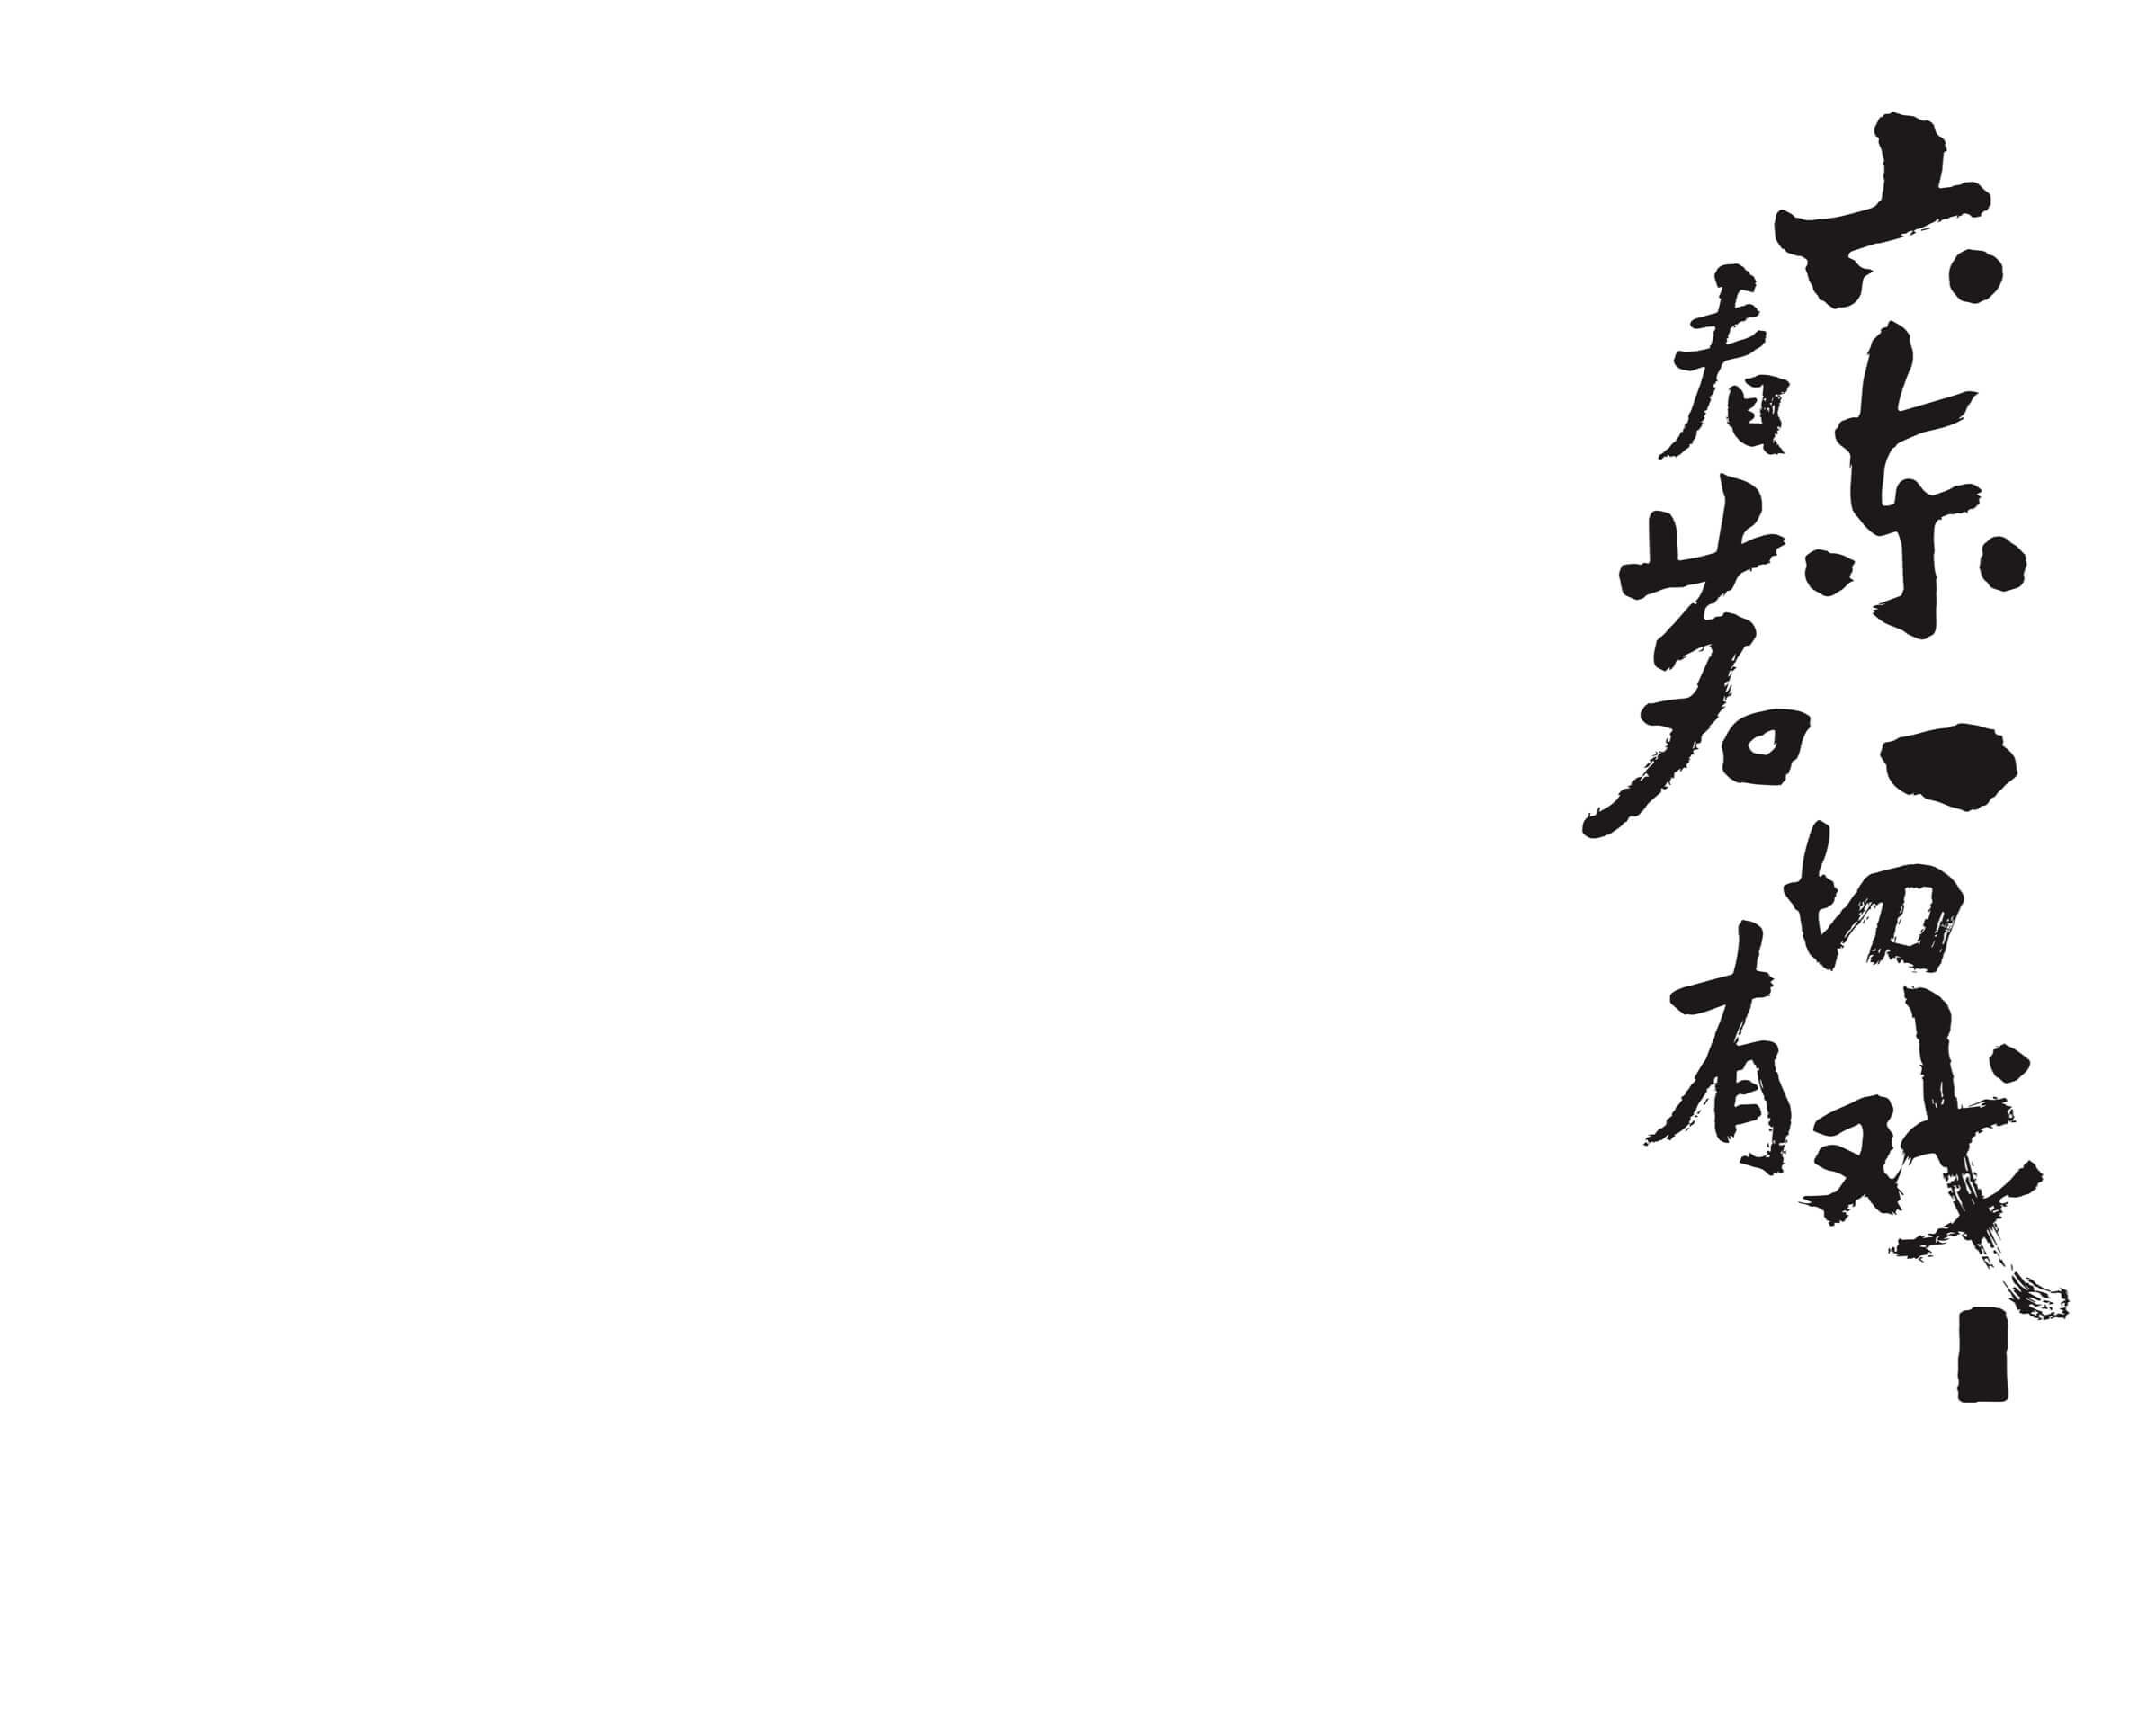 六东一切戏
看若有